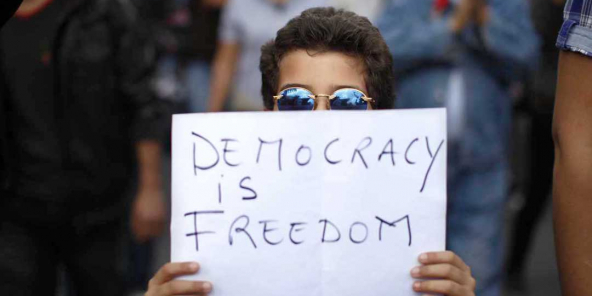 DEMOCRACY
iS
FREEDOM